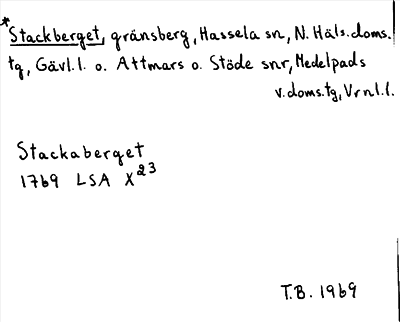 *Stackberget, gränsberg, Hassela sn, N. Häls.doms.
tg, Gävl.l. o. Attmars o. Stöde snr, Medelpads
v.doms.tg, Vrnl.l.
Stackaberget
1769 LSA X23
T.B. 1969